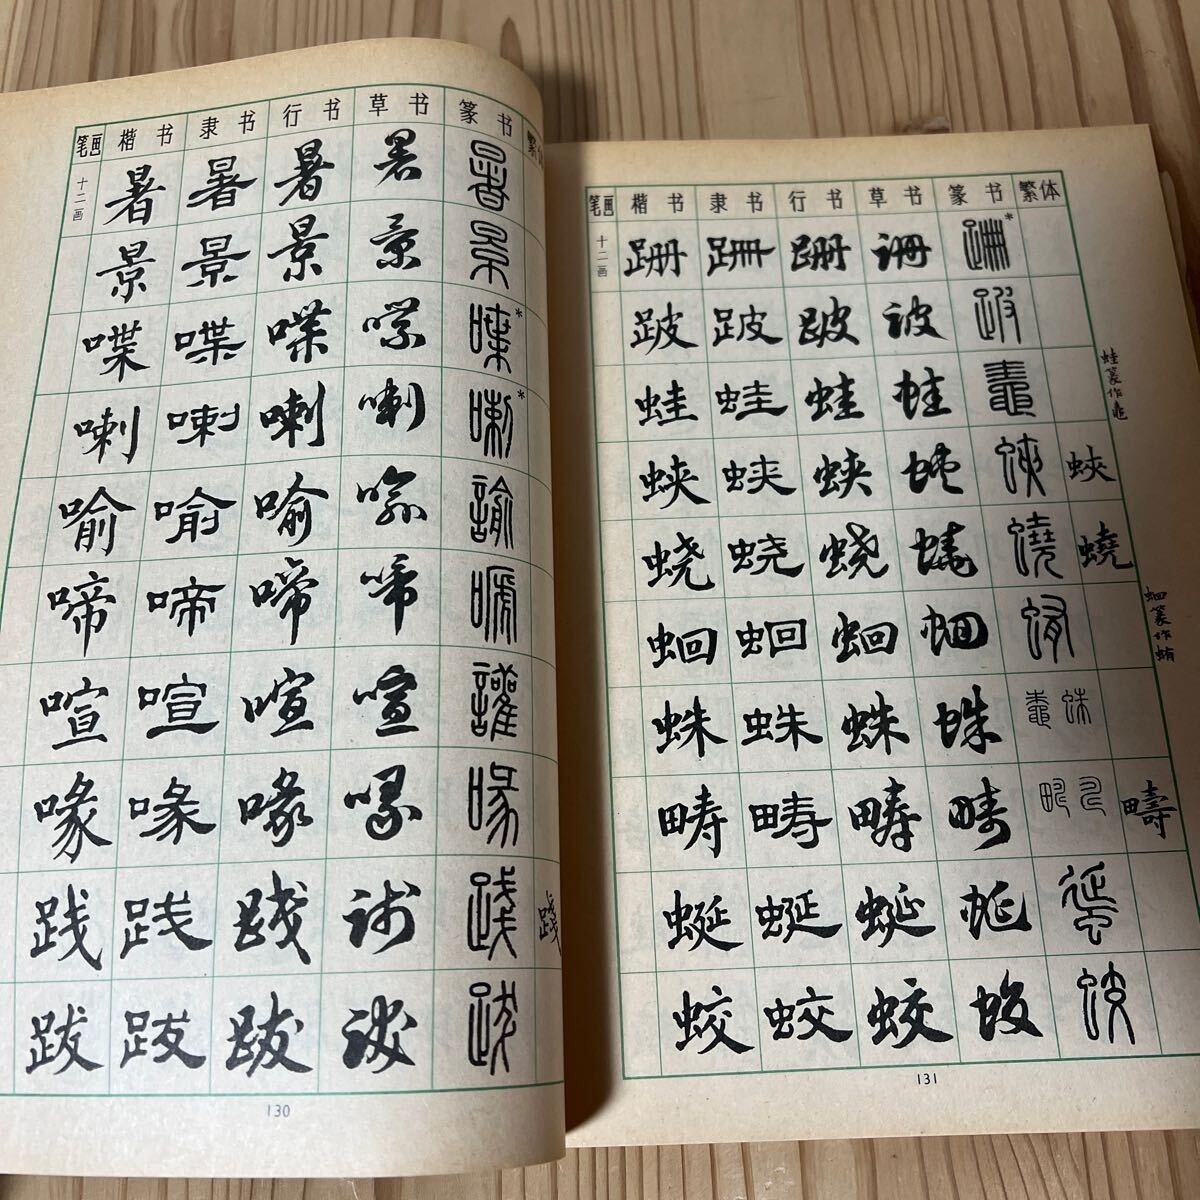 笔画 楷书 隶书 行书 草书 篆书 繁体
十二画 暑 暑 暑 暑 暑
景 景 景 景 景
喋 喋 喋 喋 喋*
喇 喇 喇 喇 喇*
喻 喻 喻 喻 諭
啼 啼 啼 啼 嗁
喧 喧 喧 喧 讙
喙 喙 喙 喙 喙
践 践 践 践 踐 踐
跋 跋 跋 跋 跋
130
笔画 楷书 隶书 行书 草书 篆书 繁体
十二画 跚 跚 跚 跚 跚*
跛 跛 跛 跛 跛
蛙 蛙 蛙 蛙 鼃 蛙篆作鼃
蛱 蛱 蛱 蛱 蛺 蛺
蛲 蛲 蛲 蛲 蟯 蟯
蛔 蛔 蛔 蛔 蛕 蛔篆作蛕
蛛 蛛 蛛 蛛 鼄 蛛
畴 畴 畴 畴 疇
蜒 蜒 蜒 蜒
蛟 蛟 蛟 蛟 蛟
131